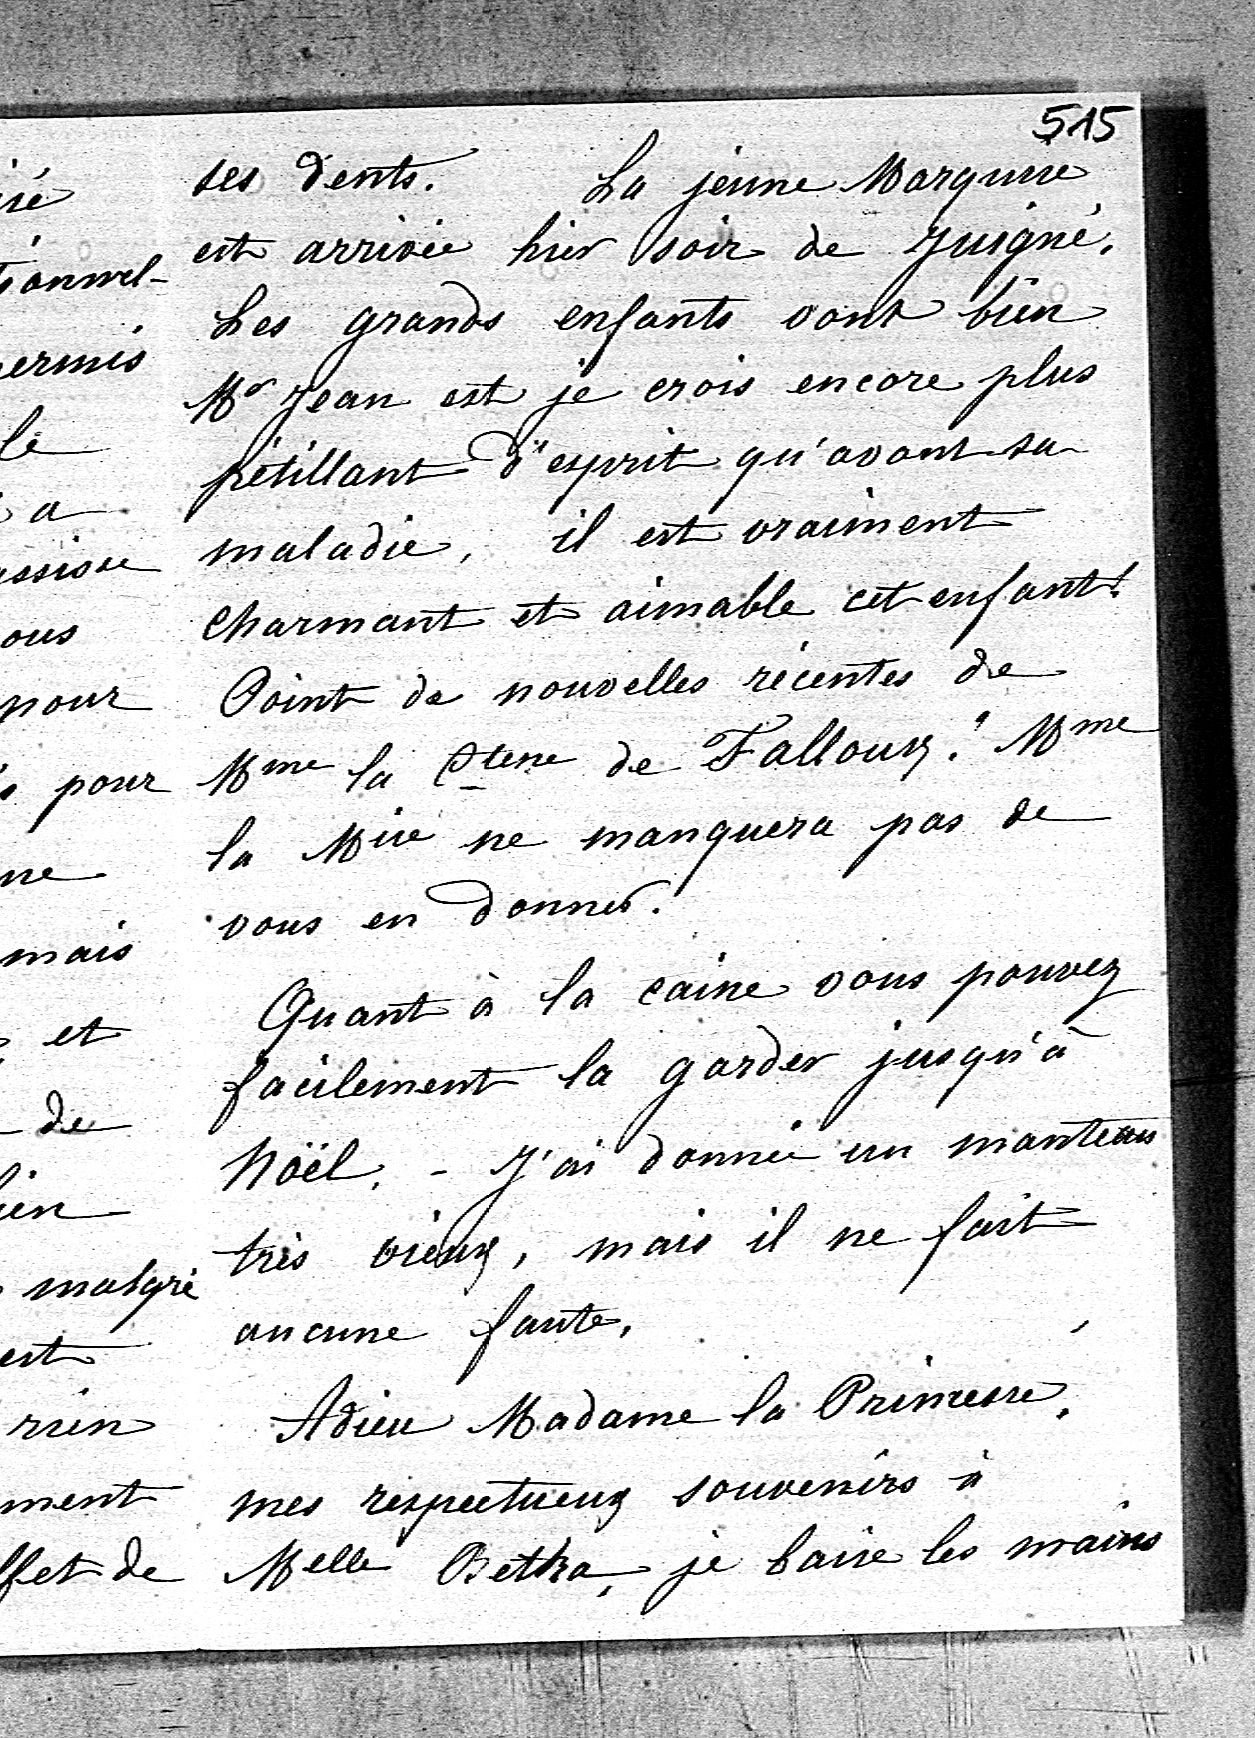 515
ses dents. La jeune Marquise
est arrivée hier soir de Juigné.
Les grands enfants vont bien
Mr Jean est je crois encore plus
pétillant d'esprit qu'avant sa
maladie, il est vraiment
charmant et aimable cet enfant!
Point de nouvelles récentes de
Mme la Ctesse de Falloux. Mme
la Mise ne manquera pas de
vous en donner.
Quant à la caisse vous pouvez
facilement la garder jusqu'à
Noël. - J'ai donné un manteau
très vieux, mais il ne fait
aucune faute.
Adieu Madame la Princesse,
mes respectueux souvenirs à
Melle Betka, je baise les mains
ermis
a
ous
pour
pour
ne
mais
et
de
malgré
est
rien
ment
ffet de